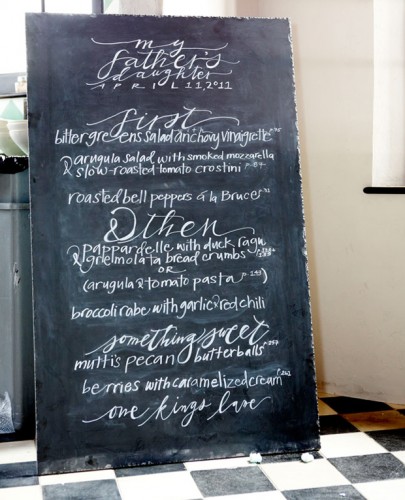 my
father's
daughter
APRIL 11, 2011
first
bitter greens salad anchovy vinaigrette p.75
& arugula salad with smoked mozzarella
& slow-roasted tomato crostini p.84
roasted bell peppers à la Bruce
& then
pappardelle with duck ragu
& gremolata bread crumbs
OR
(arugula & tomato pasta p.143)
broccoli rabe with garlic & red chili
something sweet
mutti's pecan butterballs p.257
berries with caramelized cream p.262
one kings lane